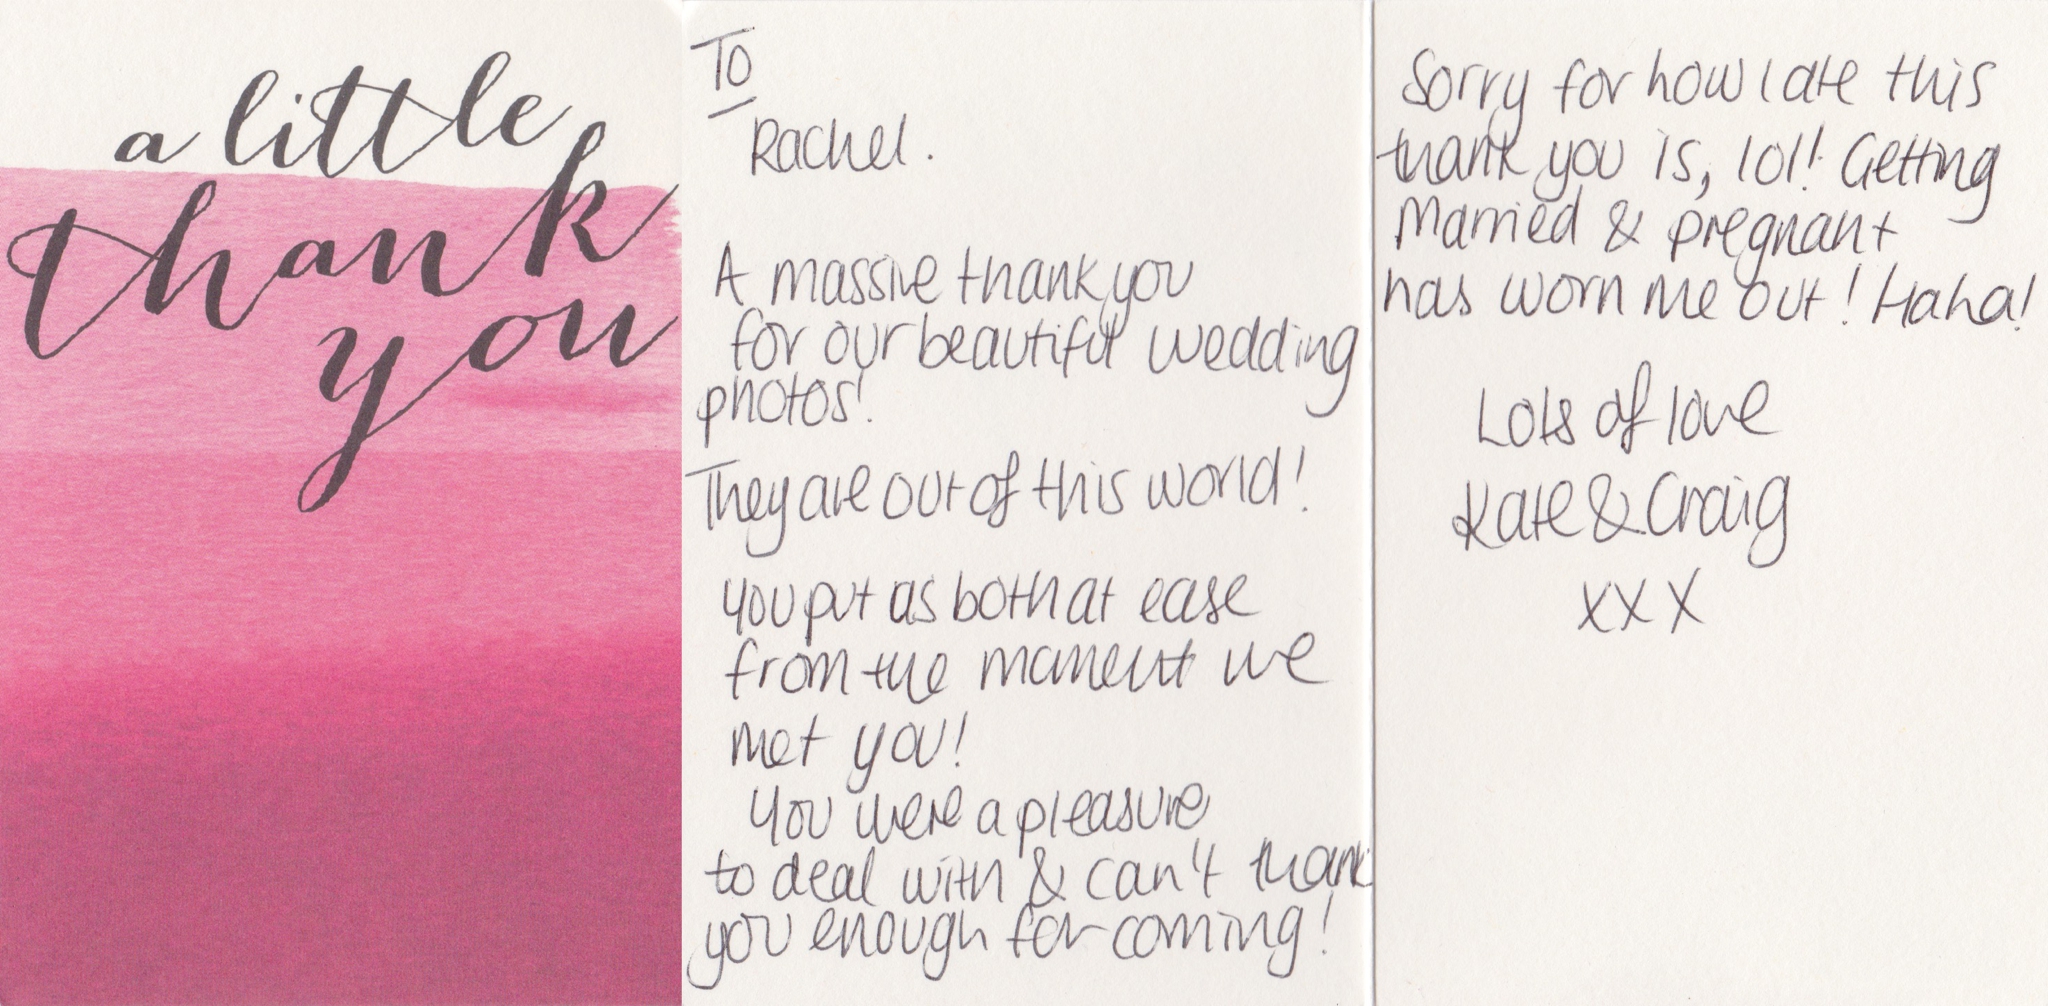 a little
thank
you
To
Rachel.
A massive thank you
for our beautiful wedding
photos!
They are out of this world!
You put as both at ease
from the moment we
met you!
You were a pleasure
to deal with & can't thank
you enough for coming!
Sorry for how late this
thank you is, lol! Getting
Married & pregnant
has worn me out! Haha!
Lots of love
Kate & Craig
xxx